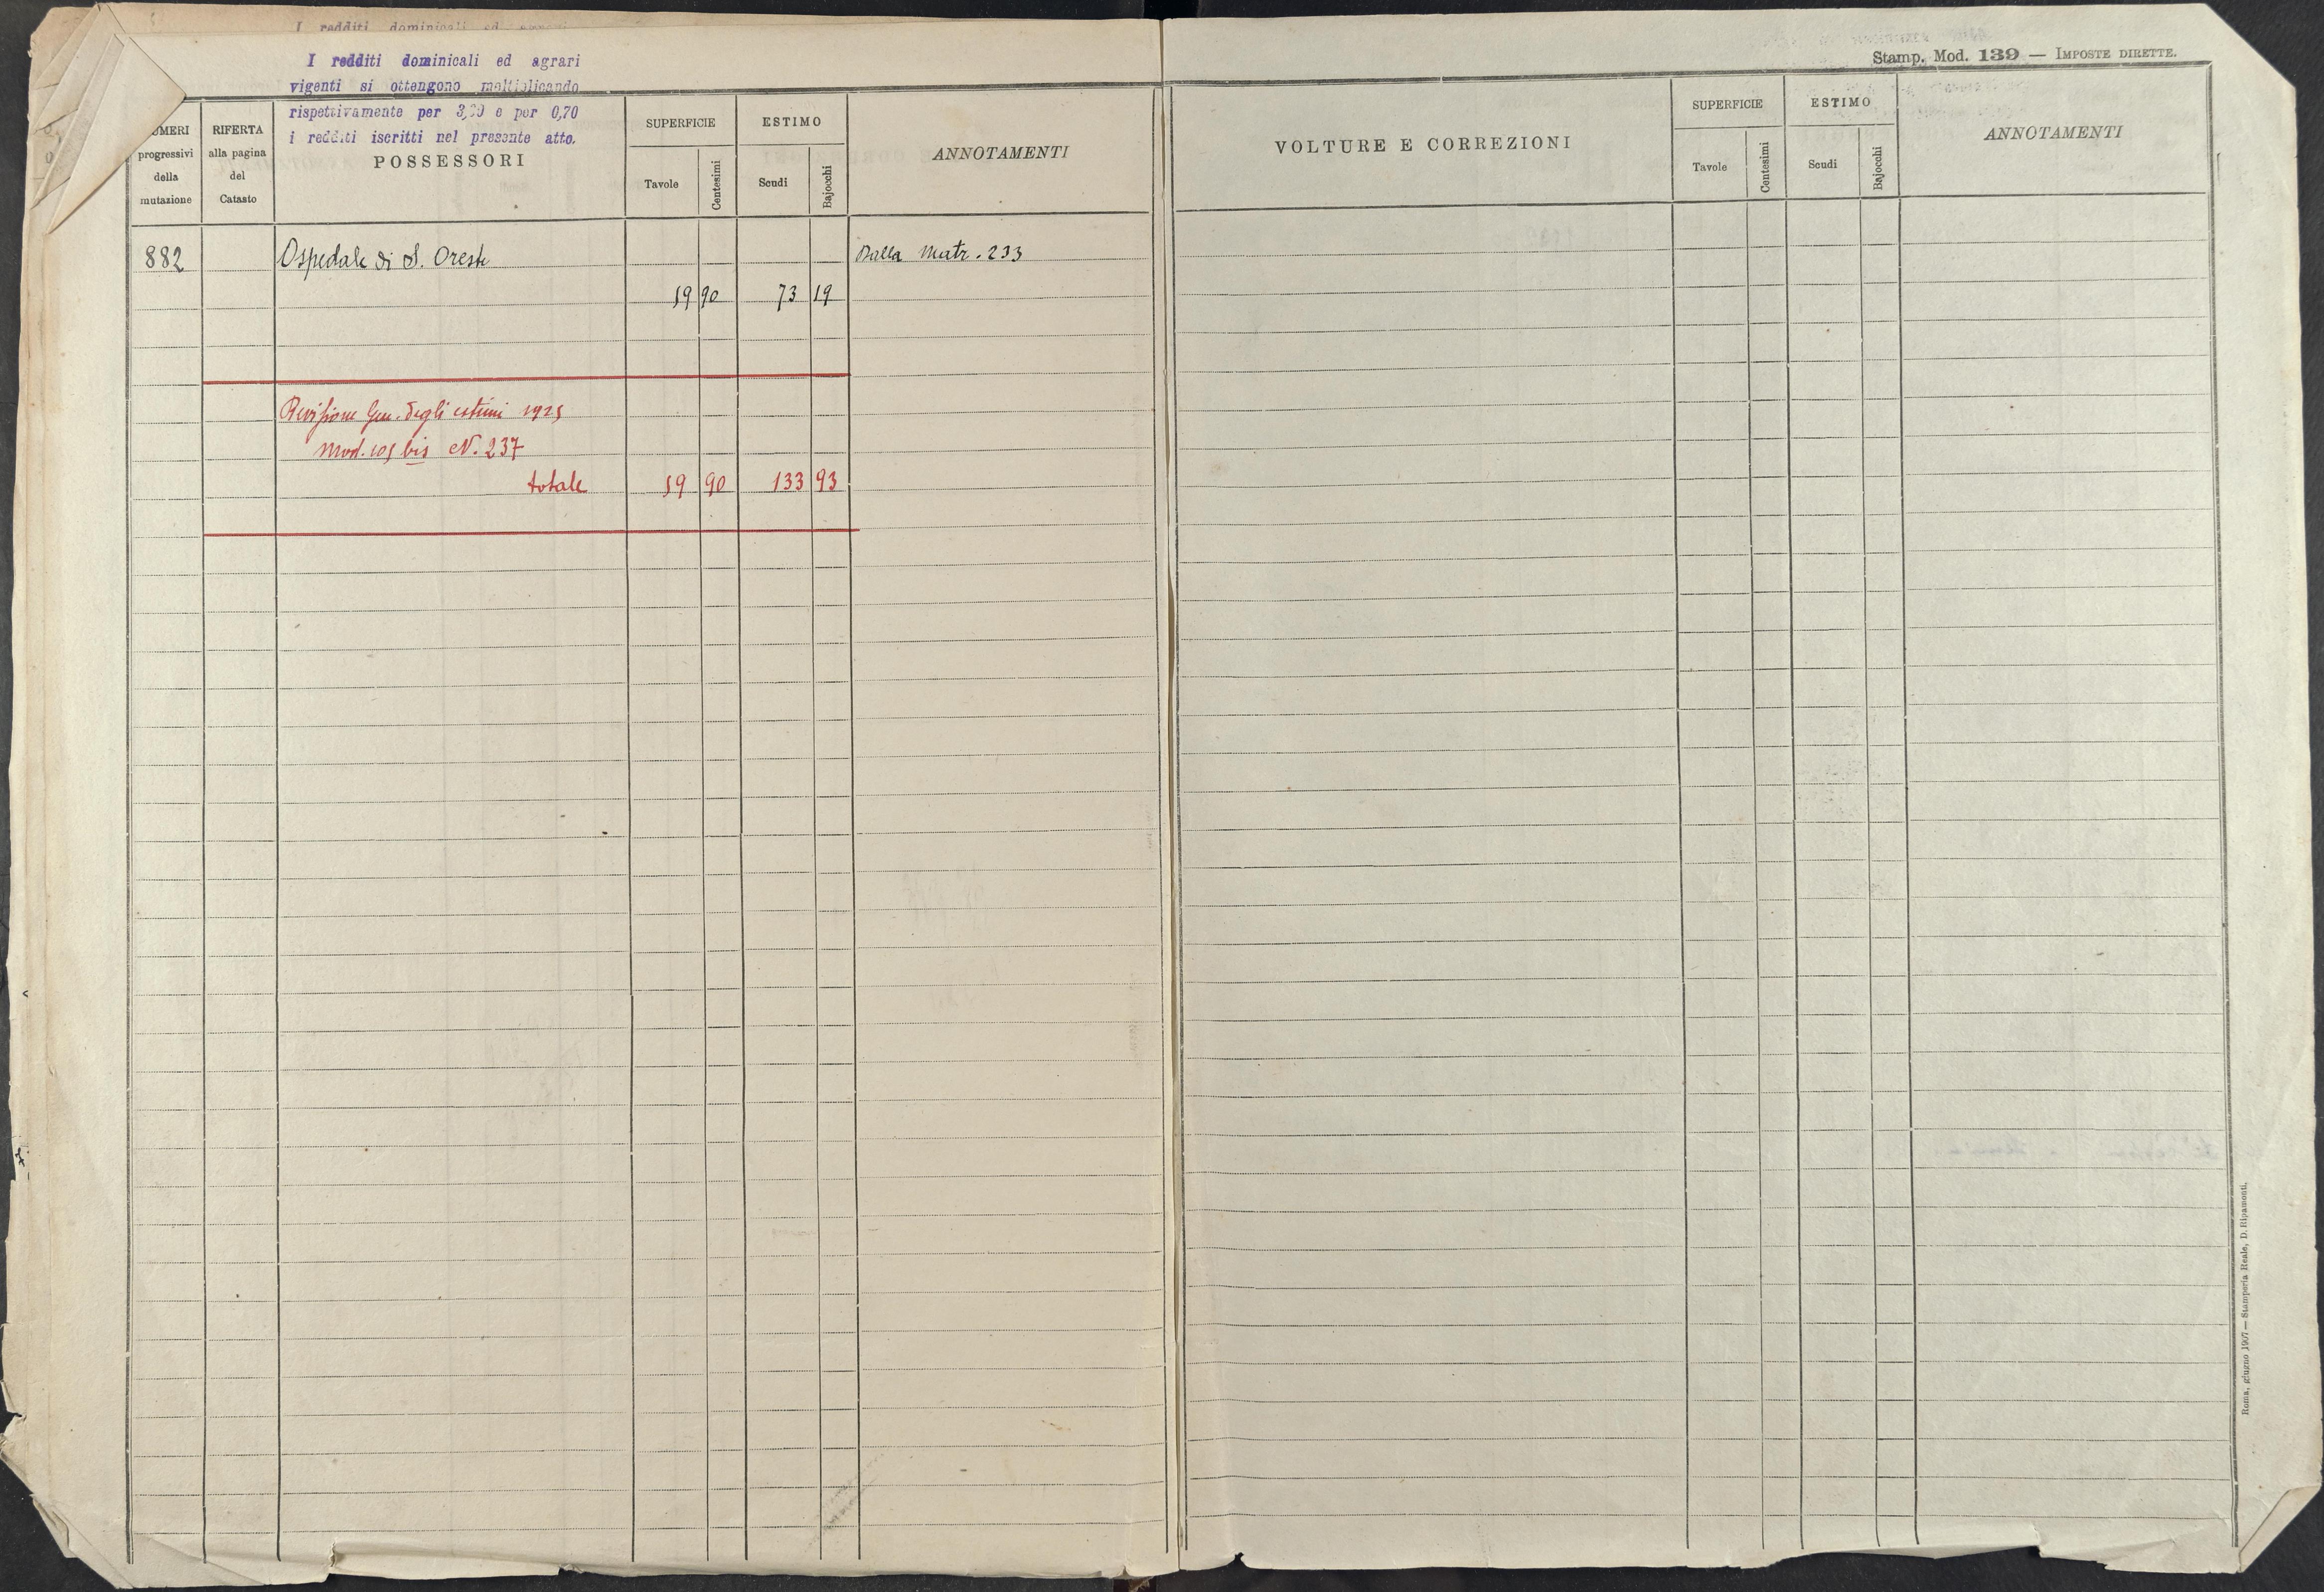 I redditi dominicali ed agrari
I redditi dominicali ed agrari
vigenti si ottengono moltiplicando
rispettivamente per 3,20 e per 0,70
i redditi iscritti nel presente atto.
NUMERI
progressivi
della
mutazione
RIFERTA
alla pagina
del
Catasto
POSSESSORI
SUPERFICIE
Tavole
Centesimi
ESTIMO
Scudi
Bajocchi
ANNOTAMENTI
882 Ospedale di S. Oreste Dalla Matr. 233
19 90 73 19
Revisione Gen. degli estimi 1925
Mod. 109 bis N. 237
totale 19 90 133 93
Stamp. Mod. 139 — IMPOSTE DIRETTE.
VOLTURE E CORREZIONI
SUPERFICIE
Tavole
Centesimi
ESTIMO
Scudi
Bajocchi
ANNOTAMENTI
Roma, giugno 1907 — Stamperia Reale, D. Ripamonti.